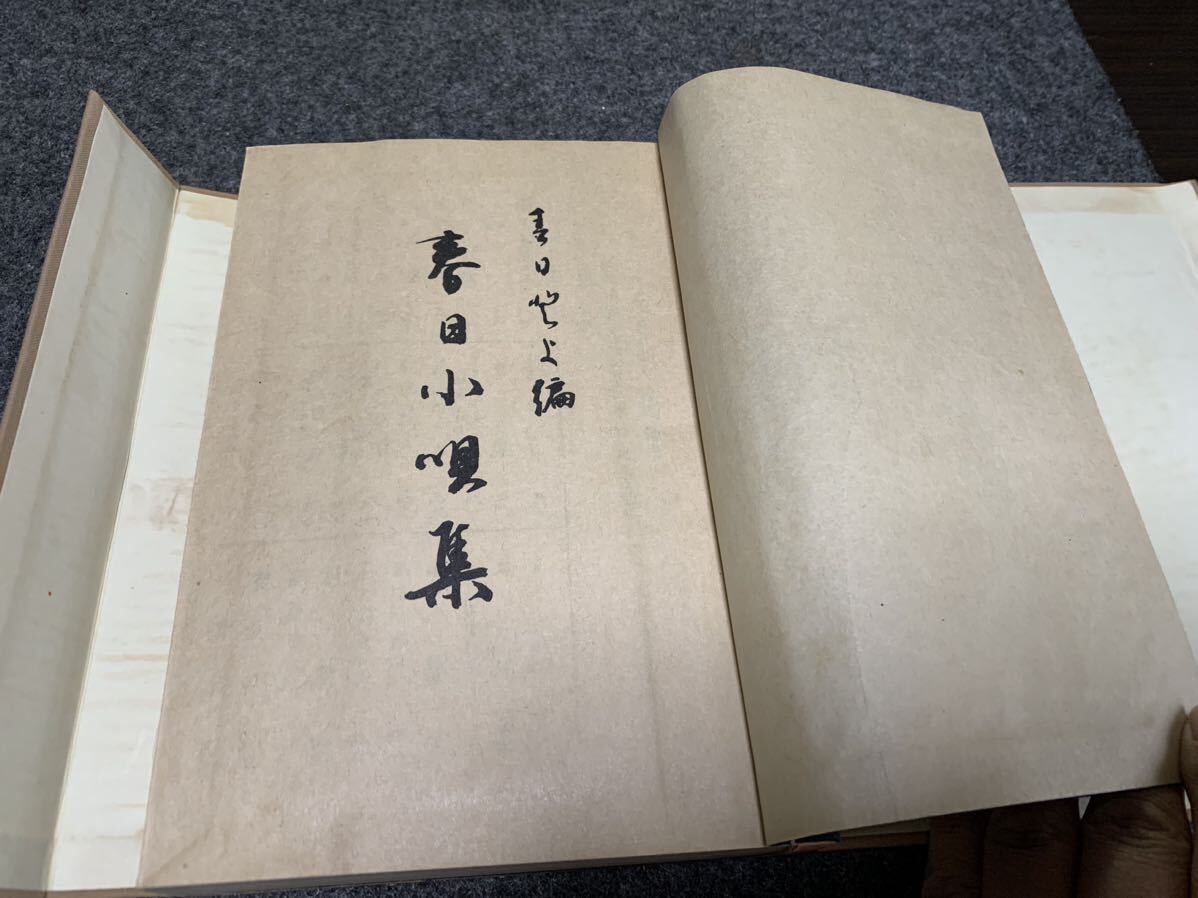 春日とよ編
春日小唄集